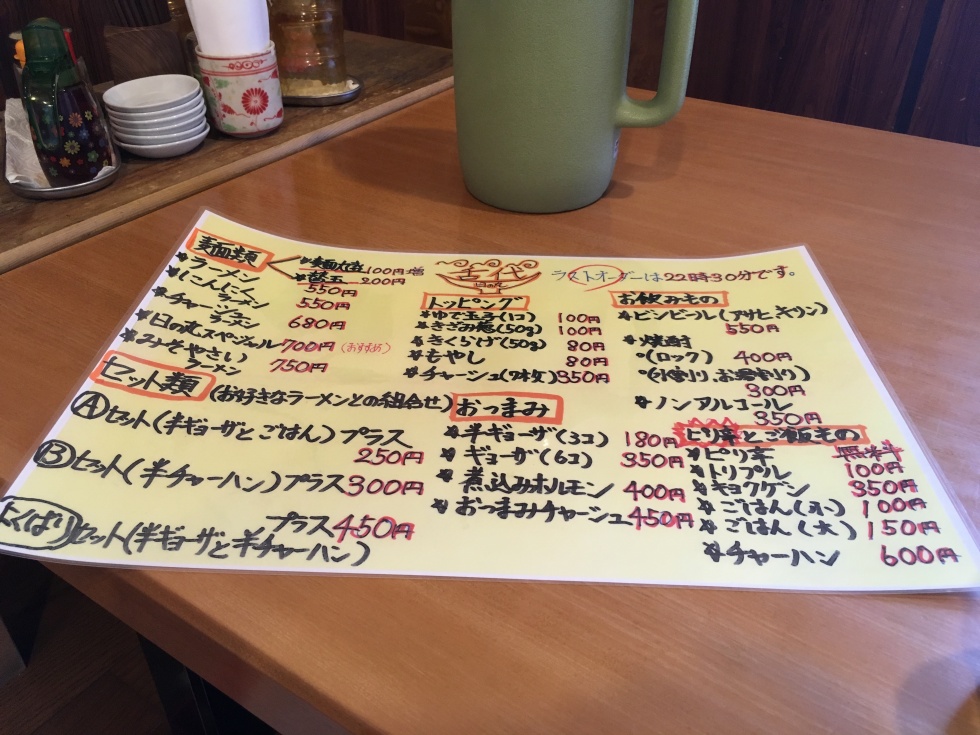 麺類
麺大盛 100円増
替玉 200円
ラーメン 550円
こんにゃくラーメン 550円
チャーシューラーメン 680円
日の丸スペシャル 700円 (おすすめ)
みそやさいラーメン 750円
セット類 (お好きなラーメンとの組合せ)
Ⓐセット(半ギョーザとごはん)プラス 250円
Ⓑセット(半チャーハン)プラス300円
よくばりセット(半ギョーザと半チャーハン) プラス450円
舌代
トッピング
ゆで玉子(1コ) 100円
きざみ葱(50g) 100円
きくらげ(50g) 80円
もやし 80円
チャーシュー(7枚) 350円
おつまみ
半ギョーザ(3コ) 180円
ギョーザ(6コ) 350円
煮込みホルモン 400円
おつまみチャーシュー 450円
ラストオーダーは22時30分です。
お飲みもの
ビンビール(アサヒ キリン) 550円
焼酎
(ロック) 400円
(水割り、お湯割り) 300円
ノンアルコール 350円
ピリ辛とご飯もの
ピリ辛 無料
トリプル 100円
キョクゲン 350円
ごはん(小) 100円
ごはん(大) 150円
チャーハン 600円